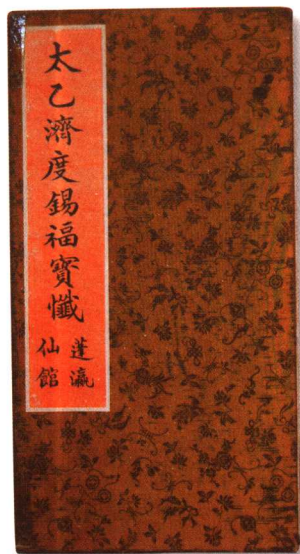 太乙濟度錫福寶懺
蓬瀛
仙館